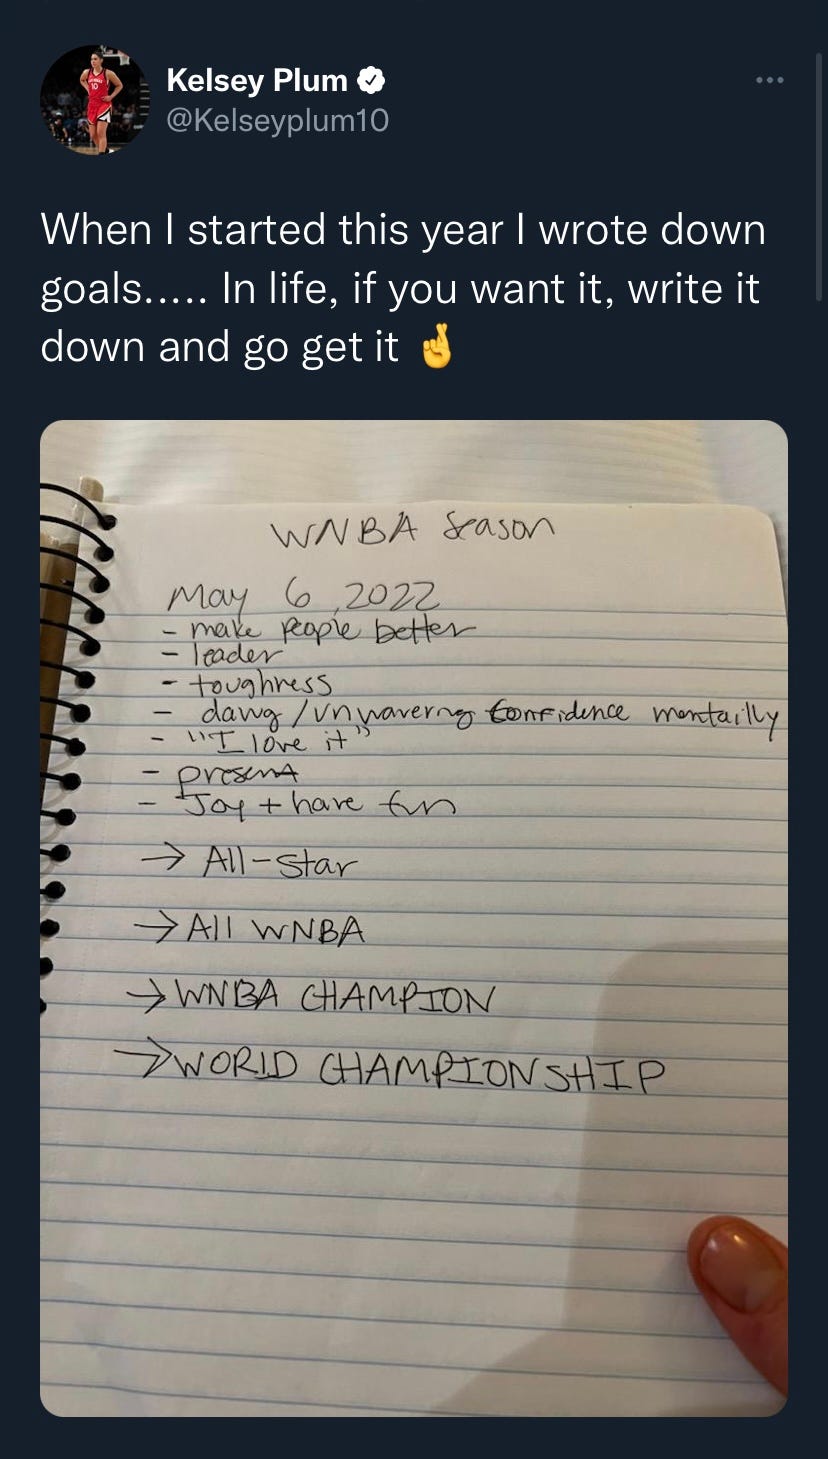 Kelsey Plum
@Kelseyplum10
When I started this year I wrote down
goals..... In life, if you want it, write it
down and go get it 🤞
WNBA Season
May 6, 2022
- make people better
- leader
- toughness
- dawg / unwavering confidence mentailly
- "I love it"
- present
- Joy + have fun
→ All-Star
→ All WNBA
→ WNBA CHAMPION
→ WORLD CHAMPIONSHIP